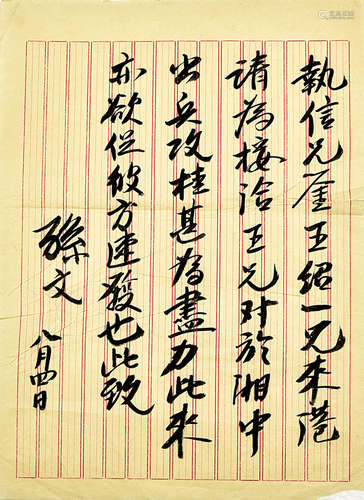 執信兄鑒王紹一兄來港
請為接洽王兄对於湘中
出兵攻桂甚為盡力此來
亦欲促彼方速發也此致
孫文
八月四日